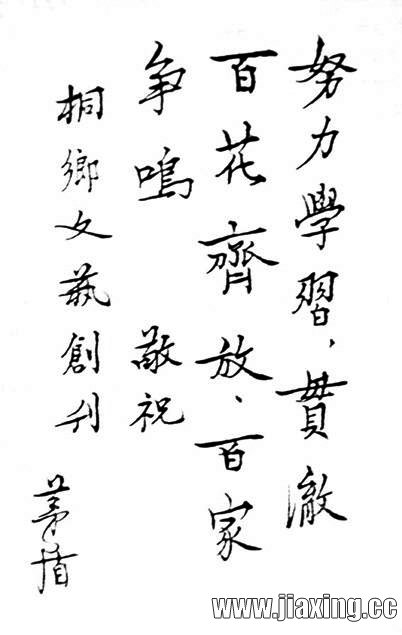 努力學習，貫徹
百花齊放、百家
争鳴 敬祝
桐鄉文藝創刊
茅盾
www.jiaxing.cc